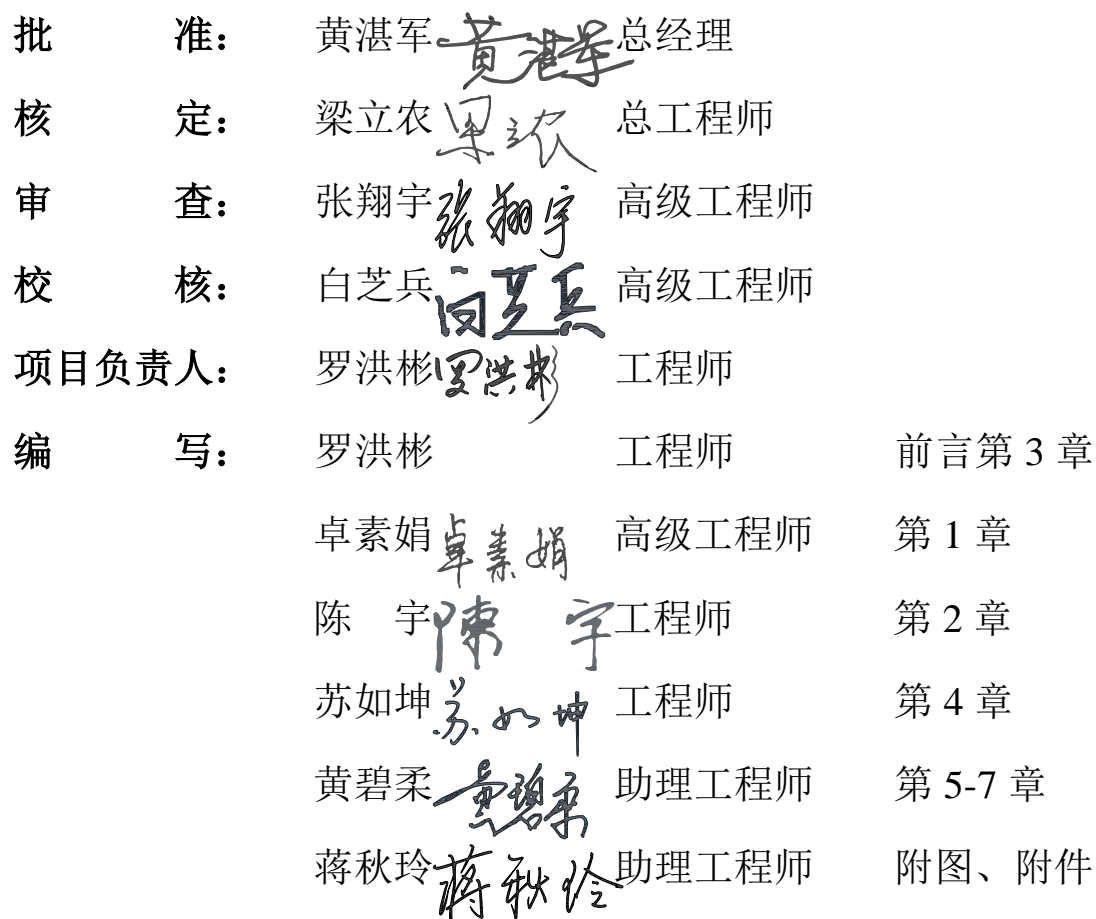 批 准： 黄湛军 黄湛军 总经理
核 定： 梁立农 梁立农 总工程师
审 查： 张翔宇 张翔宇 高级工程师
校 核： 白芝兵 白芝兵 高级工程师
项目负责人： 罗洪彬 罗洪彬 工程师
编 写： 罗洪彬 工程师 前言第 3 章
卓素娟 卓素娟 高级工程师 第 1 章
陈 宇 陳 宇 工程师 第 2 章
苏如坤 苏如坤 工程师 第 4 章
黄碧柔 黄碧柔 助理工程师 第 5-7 章
蒋秋玲 蒋秋玲 助理工程师 附图、附件